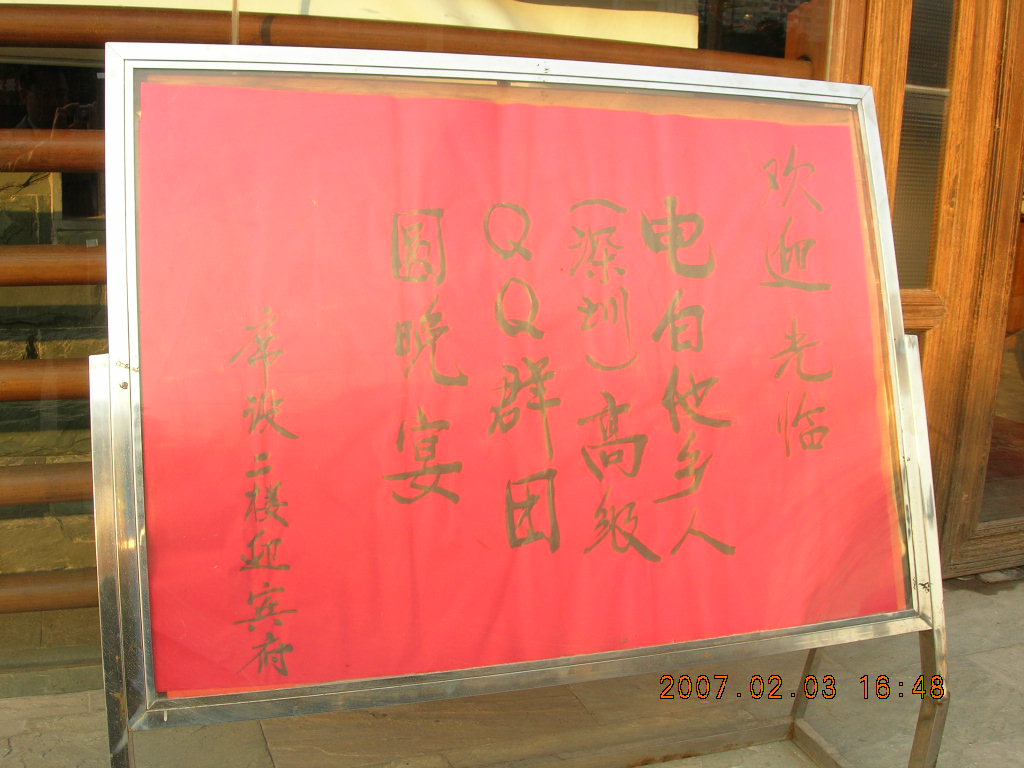 欢迎光临
电白他乡人
(深圳)高级
QQ群团
圆晚宴
席设二楼迎宾府
2007.02.03 16:48